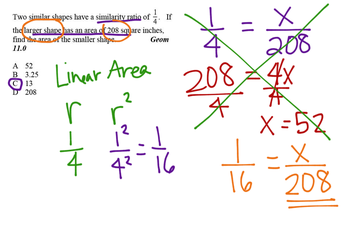 Two similar shapes have a similarity ratio of 1/4. If
the larger shape has an area of 208 square inches,
find the area of the smaller shape. Geom
11.0
A 52
B 3.25
C 13
D 208
Linear Area
r r²
1/4 1²/4² = 1/16
1/4 = x/208
208/4 = 4x/4
x = 52
1/16 = x/208